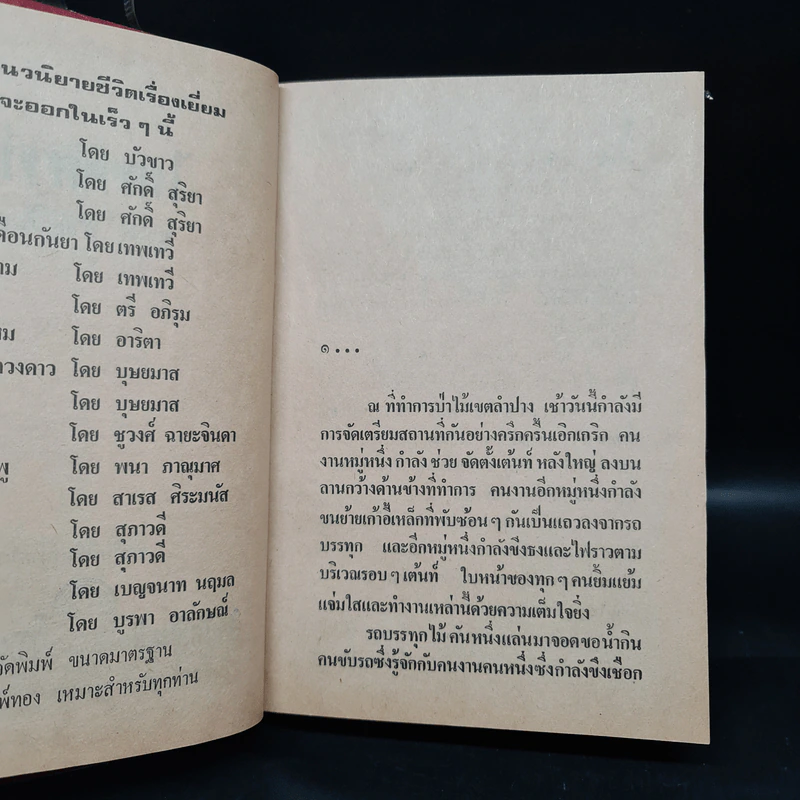 นวนิยายชีวิตเรื่องเยี่ยม
จะออกในเร็ว ๆ นี้
โดย บัวขาว
โดย ศักดิ์ สุริยา
โดย ศักดิ์ สุริยา
โดย เทพเทวี
โดย เทพเทวี
โดย ตรี อภิรุม
โดย อาริตา
โดย บุษยมาส
โดย บุษยมาส
โดย ชูวงศ์ ฉายะจินดา
โดย พนา ภาณุมาศ
โดย สาเรส ศิระมนัส
โดย สุภาวดี
โดย สุภาวดี
โดย เบญจนาท นฤมล
โดย บูรพา อาลักษณ์
จัดพิมพ์ ขนาดมาตรฐาน
เหมาะสำหรับทุกท่าน
๑ . . .
ณ ที่ทำการป่าไม้เขตลำปาง เช้าวันนี้กำลังมี
การจัดเตรียมสถานที่กันอย่างครึกครื้นเอิกเกริก คน
งานหมู่หนึ่ง กำลัง ช่วย จัดตั้งเต้นท์ หลังใหญ่ ลงบน
ลานกว้างด้านข้างที่ทำการ คนงานอีกหมู่หนึ่งกำลัง
ขนย้ายเก้าอี้เหล็กที่พับซ้อน ๆ กันเป็นแถวลงจากรถ
บรรทุก และอีกหมู่หนึ่งกำลังขึงธงและไฟราวตาม
บริเวณรอบ ๆ เต้นท์ ใบหน้าของทุก ๆ คนยิ้มแย้ม
แจ่มใสและทำงานเหล่านี้ด้วยความเต็มใจยิ่ง
รถบรรทุกไม้ คันหนึ่งแล่นมาจอดขอน้ำกิน
คนขับรถซึ่งรู้จักกับคนงานคนหนึ่งซึ่งกำลังขึงเชือก